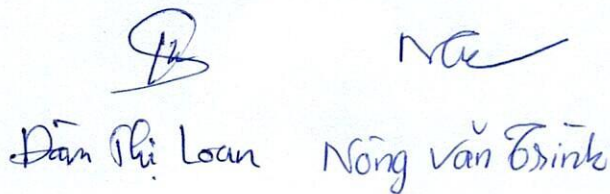 Đàm Thị Loan Nông Văn Trình